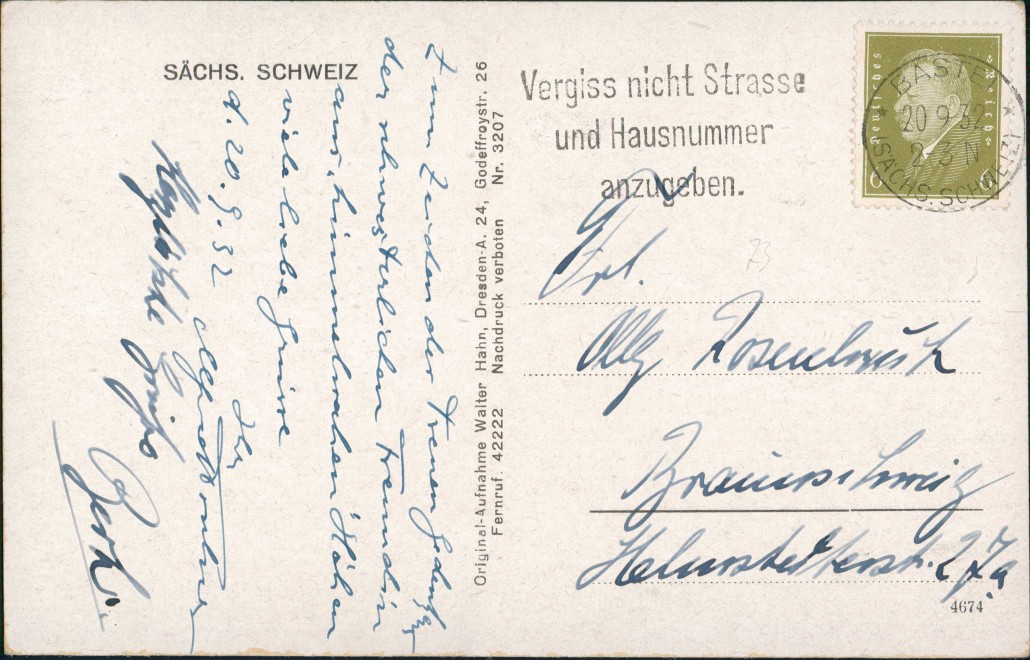 SÄCHS. SCHWEIZ
Zum Zeichen der treuen Gedenkens
der schwesterlichen Freundin
aus himmelnahen Höhen
viele liebe Grüsse
d. 20. 9. 32 Ihr
Alfred
Herzlichste Grüße
Original-Aufnahme Walter Hahn, Dresden-A. 24, Godeffroystr. 26
Fernruf. 42222 Nachdruck verboten Nr. 3207
Vergiss nicht Strasse
und Hausnummer
anzugeben.
Deutsches Reich
6 6
BASTEI
20 9 32
2-3 N
(SÄCHS. SCHWEIZ)
73
Frl.
Olly Rosenbruch
Braunschweig
Helmstedterstr. 27a
4674